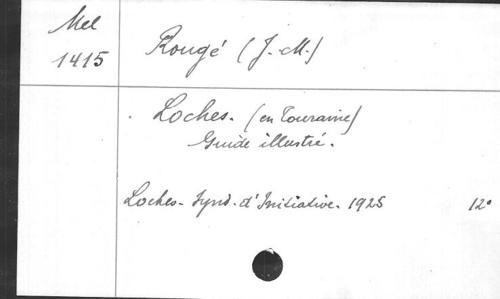 Mel
1415
Rougé (J.-M.)
Loches. (en Touraine)
Guide illustré.
Loches - Synd. d'Initiative. 1925 12°